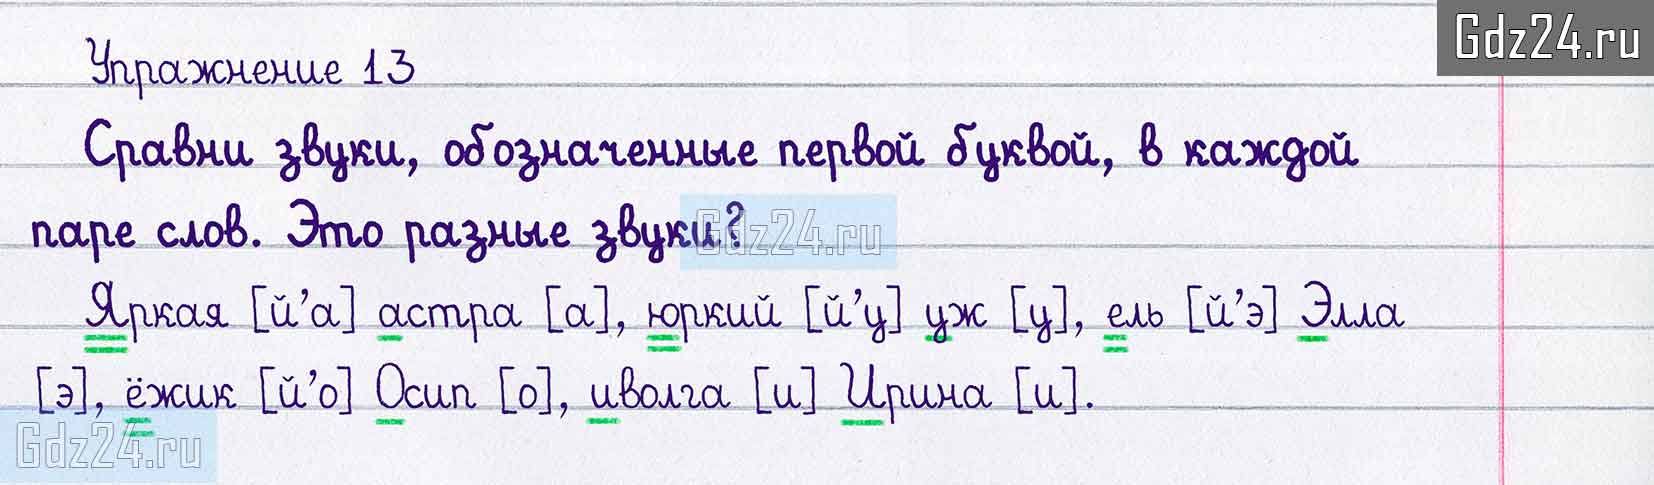 Gdz24.ru
Упражнение 13
Сравни звуки, обозначенные первой буквой, в каждой
паре слов. Это разные звуки?
Gdz24.ru
Яркая [й’а] астра [а], юркий [й’у] уж [у], ель [й’э] Элла
[э], ёжик [й’о] Осип [о], иволга [и] Ирина [и].
Gdz24.ru